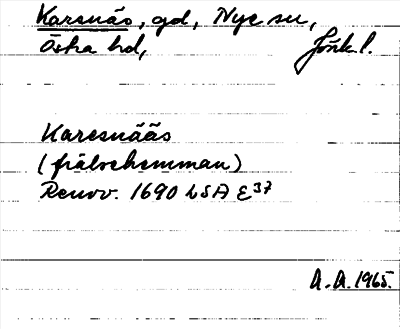 Karsnäs, gd, Nye sn,
Östra hd, Jönk. l.
Karesnääs
(frälsehemman)
Renov. 1690 LSA E37
A. A. 1965.